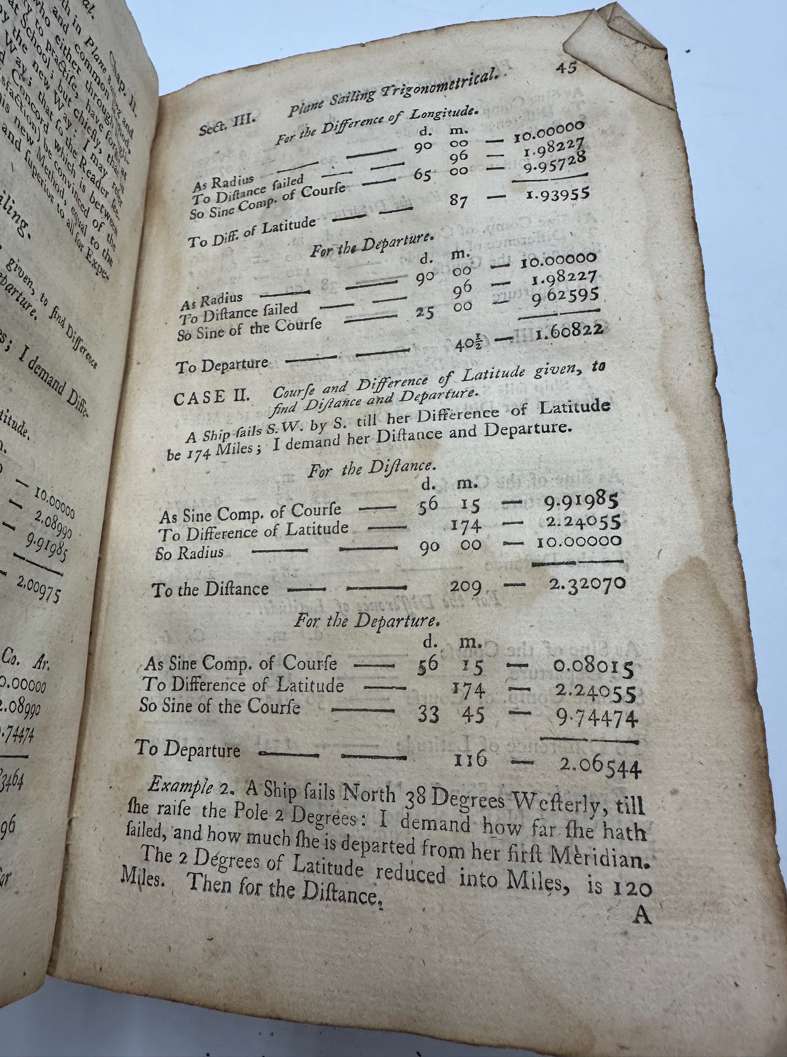 Chap. II.
10.00000
2.08990
9.91985
2.00975
Co. Ar.
0.00000
2.08990
9.74474
Sect. III. Plane Sailing Trigonometrical. 45
For the Difference of Longitude.
d. m.
As Radius — — 90 00 — 10.00000
To Distance ſailed — — 96 — 1.98227
So Sine Comp. of Courſe — 65 00 — 9.95728
To Diff. of Latitude — — 87 — 1.93955
For the Departure.
d. m.
As Radius — — 90 00 — 10.00000
To Diſtance ſailed — — 96 — 1.98227
So Sine of the Courſe — 25 00 — 9 62595
To Departure — — 40½ — 1.60822
CASE II. Courſe and Difference of Latitude given, to
find Diſtance and Departure.
A Ship ſails S. W. by S. till her Difference of Latitude
be 174 Miles; I demand her Diſtance and Departure.
For the Diſtance.
d. m.
As Sine Comp. of Courſe — 56 15 — 9.91985
To Difference of Latitude — 174 — 2.24055
So Radius — — 90 00 — 10.00000
To the Diſtance — — 209 — 2.32070
For the Departure.
d. m.
As Sine Comp. of Courſe — 56 15 — 0.08015
To Difference of Latitude — 174 — 2.24055
So Sine of the Courſe — 33 45 — 9.74474
To Departure — — 116 — 2.06544
Example 2. A Ship ſails North 38 Degrees Weſterly, till
ſhe raiſe the Pole 2 Degrees: I demand how far ſhe hath
ſailed, and how much ſhe is departed from her firſt Meridian.
The 2 Degrees of Latitude reduced into Miles, is 120
Miles. Then for the Diſtance,
A